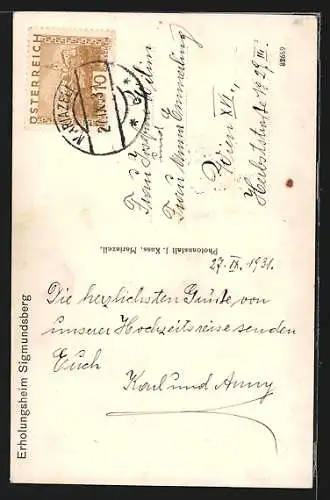 ÖSTERREICH
10
MARIAZELL
Frau Josefine
und
Frau Anna Emmerling
Wien XVI.
Herbststraße 1929 III.
82659
Photoanstalt J. Kuss, Mariazell.
27. IX. 1931.
Die herzlichsten Grüße von
unserer Hochzeitsreise senden
Euch
Karl und Anny
Erholungsheim Sigmundsberg